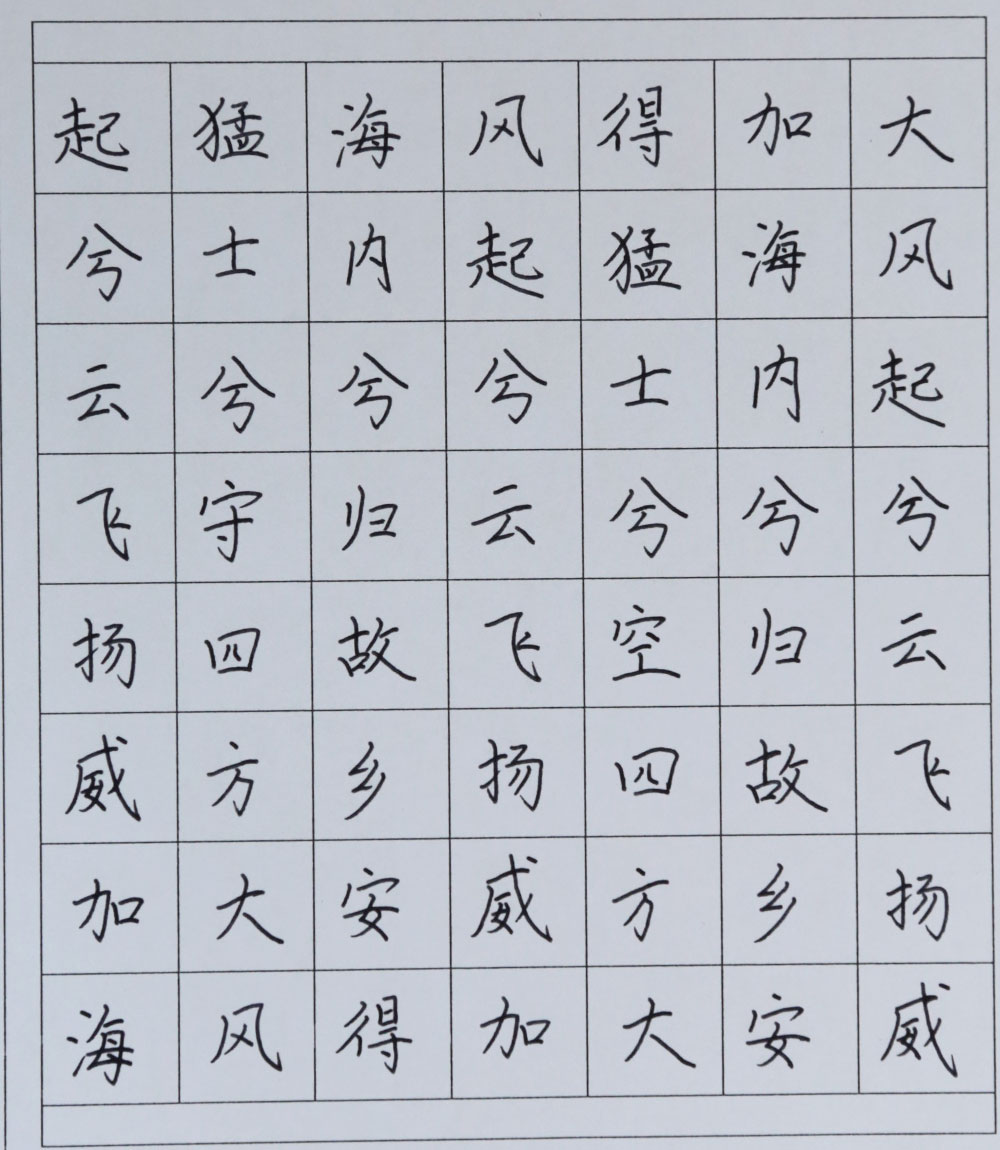 大风起兮云飞扬威
加海内兮归故乡安
得猛士兮空四方大
风起兮云飞扬威加
海内兮归故乡安得
猛士兮守四方大风
起兮云飞扬威加海